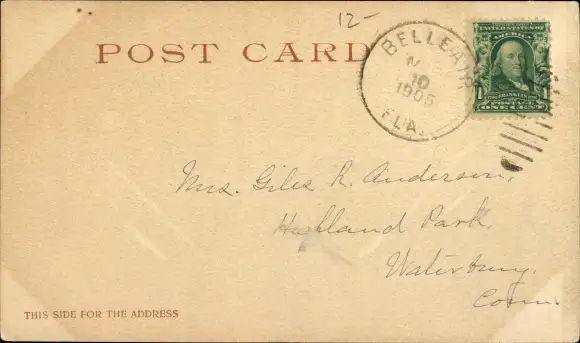 12-
POST CARD
BELLEAIR
10
1905
FLA.
UNITED STATES OF
AMERICA
FRANKLIN
POSTAGE
ONE CENT
Mrs. Giles R. Anderson,
Highland Park,
Waterbury,
Conn.
THIS SIDE FOR THE ADDRESS